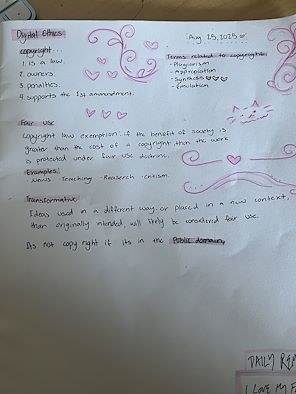 Digital Ethics
Aug. 25, 2025
copyright...
1. is a law.
2. owners
3. penalties.
4. supports the 1st ammendment.
Terms related to copyright:
- Plagiarism
- Appropiation
- Synthesis
- Emulation
Fair use
Copyright law exemption: if the benefit of society is
greater than the cost of a copyright, then the work
is protected under fair use doctrine.
Examples:
News. Teaching. Research.
Transformative:
Ideas used in a different way. or placed in a new context,
than originally intended, will likely be considered fair use.
Its not copyright if its in the Public domain,
DAILY REP
I LOVE MY F